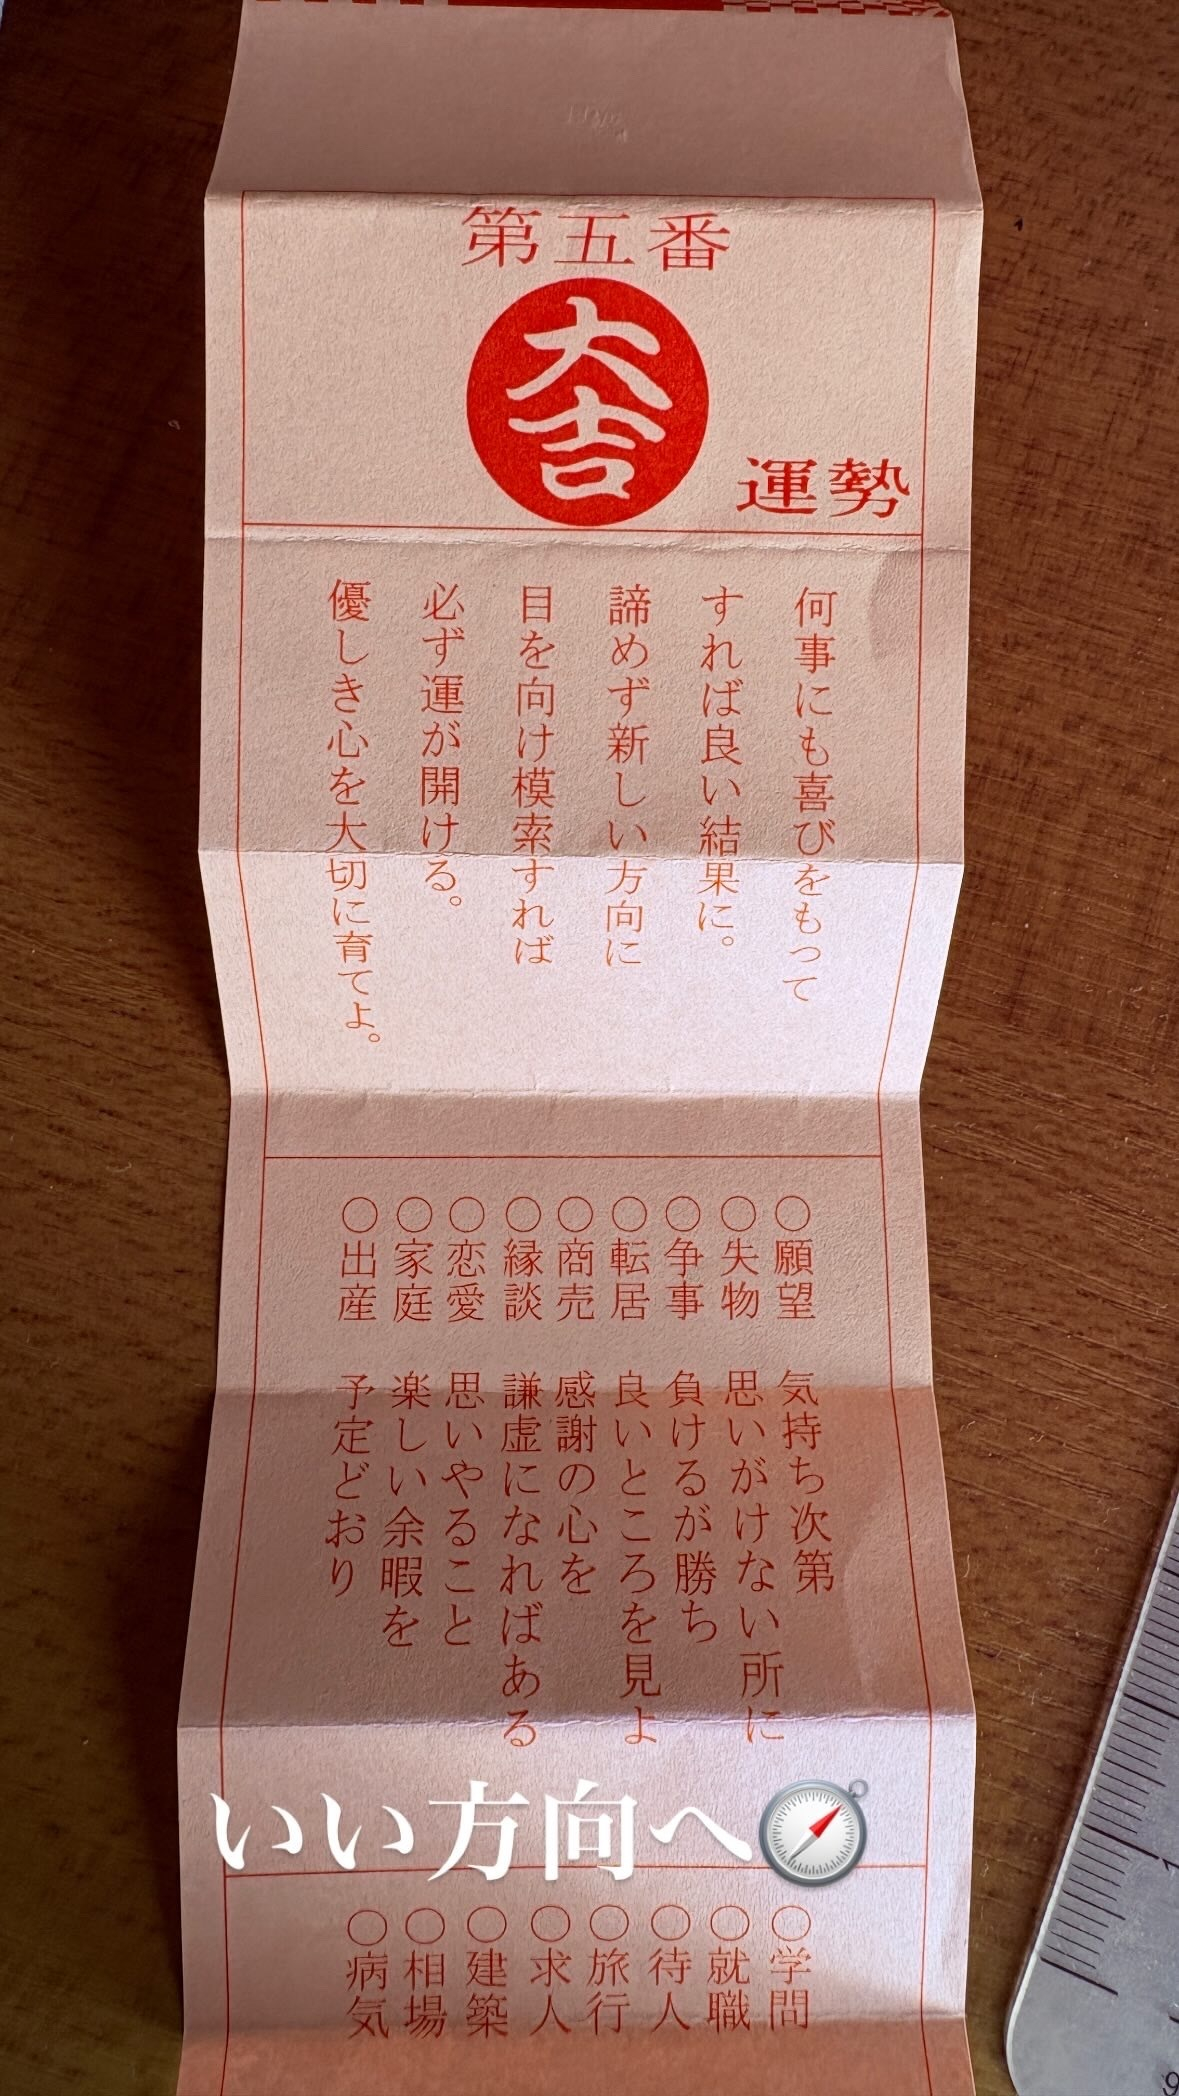 第五番
大吉
運勢
何事にも喜びをもって
すれば良い結果に。
諦めず新しい方向に
目を向け模索すれば
必ず運が開ける。
優しき心を大切に育てよ。
○願望 気持ち次第
○失物 思いがけない所に
○争事 負けるが勝ち
○転居 良いところを見よ
○商売 感謝の心を
○縁談 謙虚になればある
○恋愛 思いやること
○家庭 楽しい余暇を
○出産 予定どおり
いい方向へ🧭
○学問
○就職
○待人
○旅行
○求人
○建築
○相場
○病気
1
9